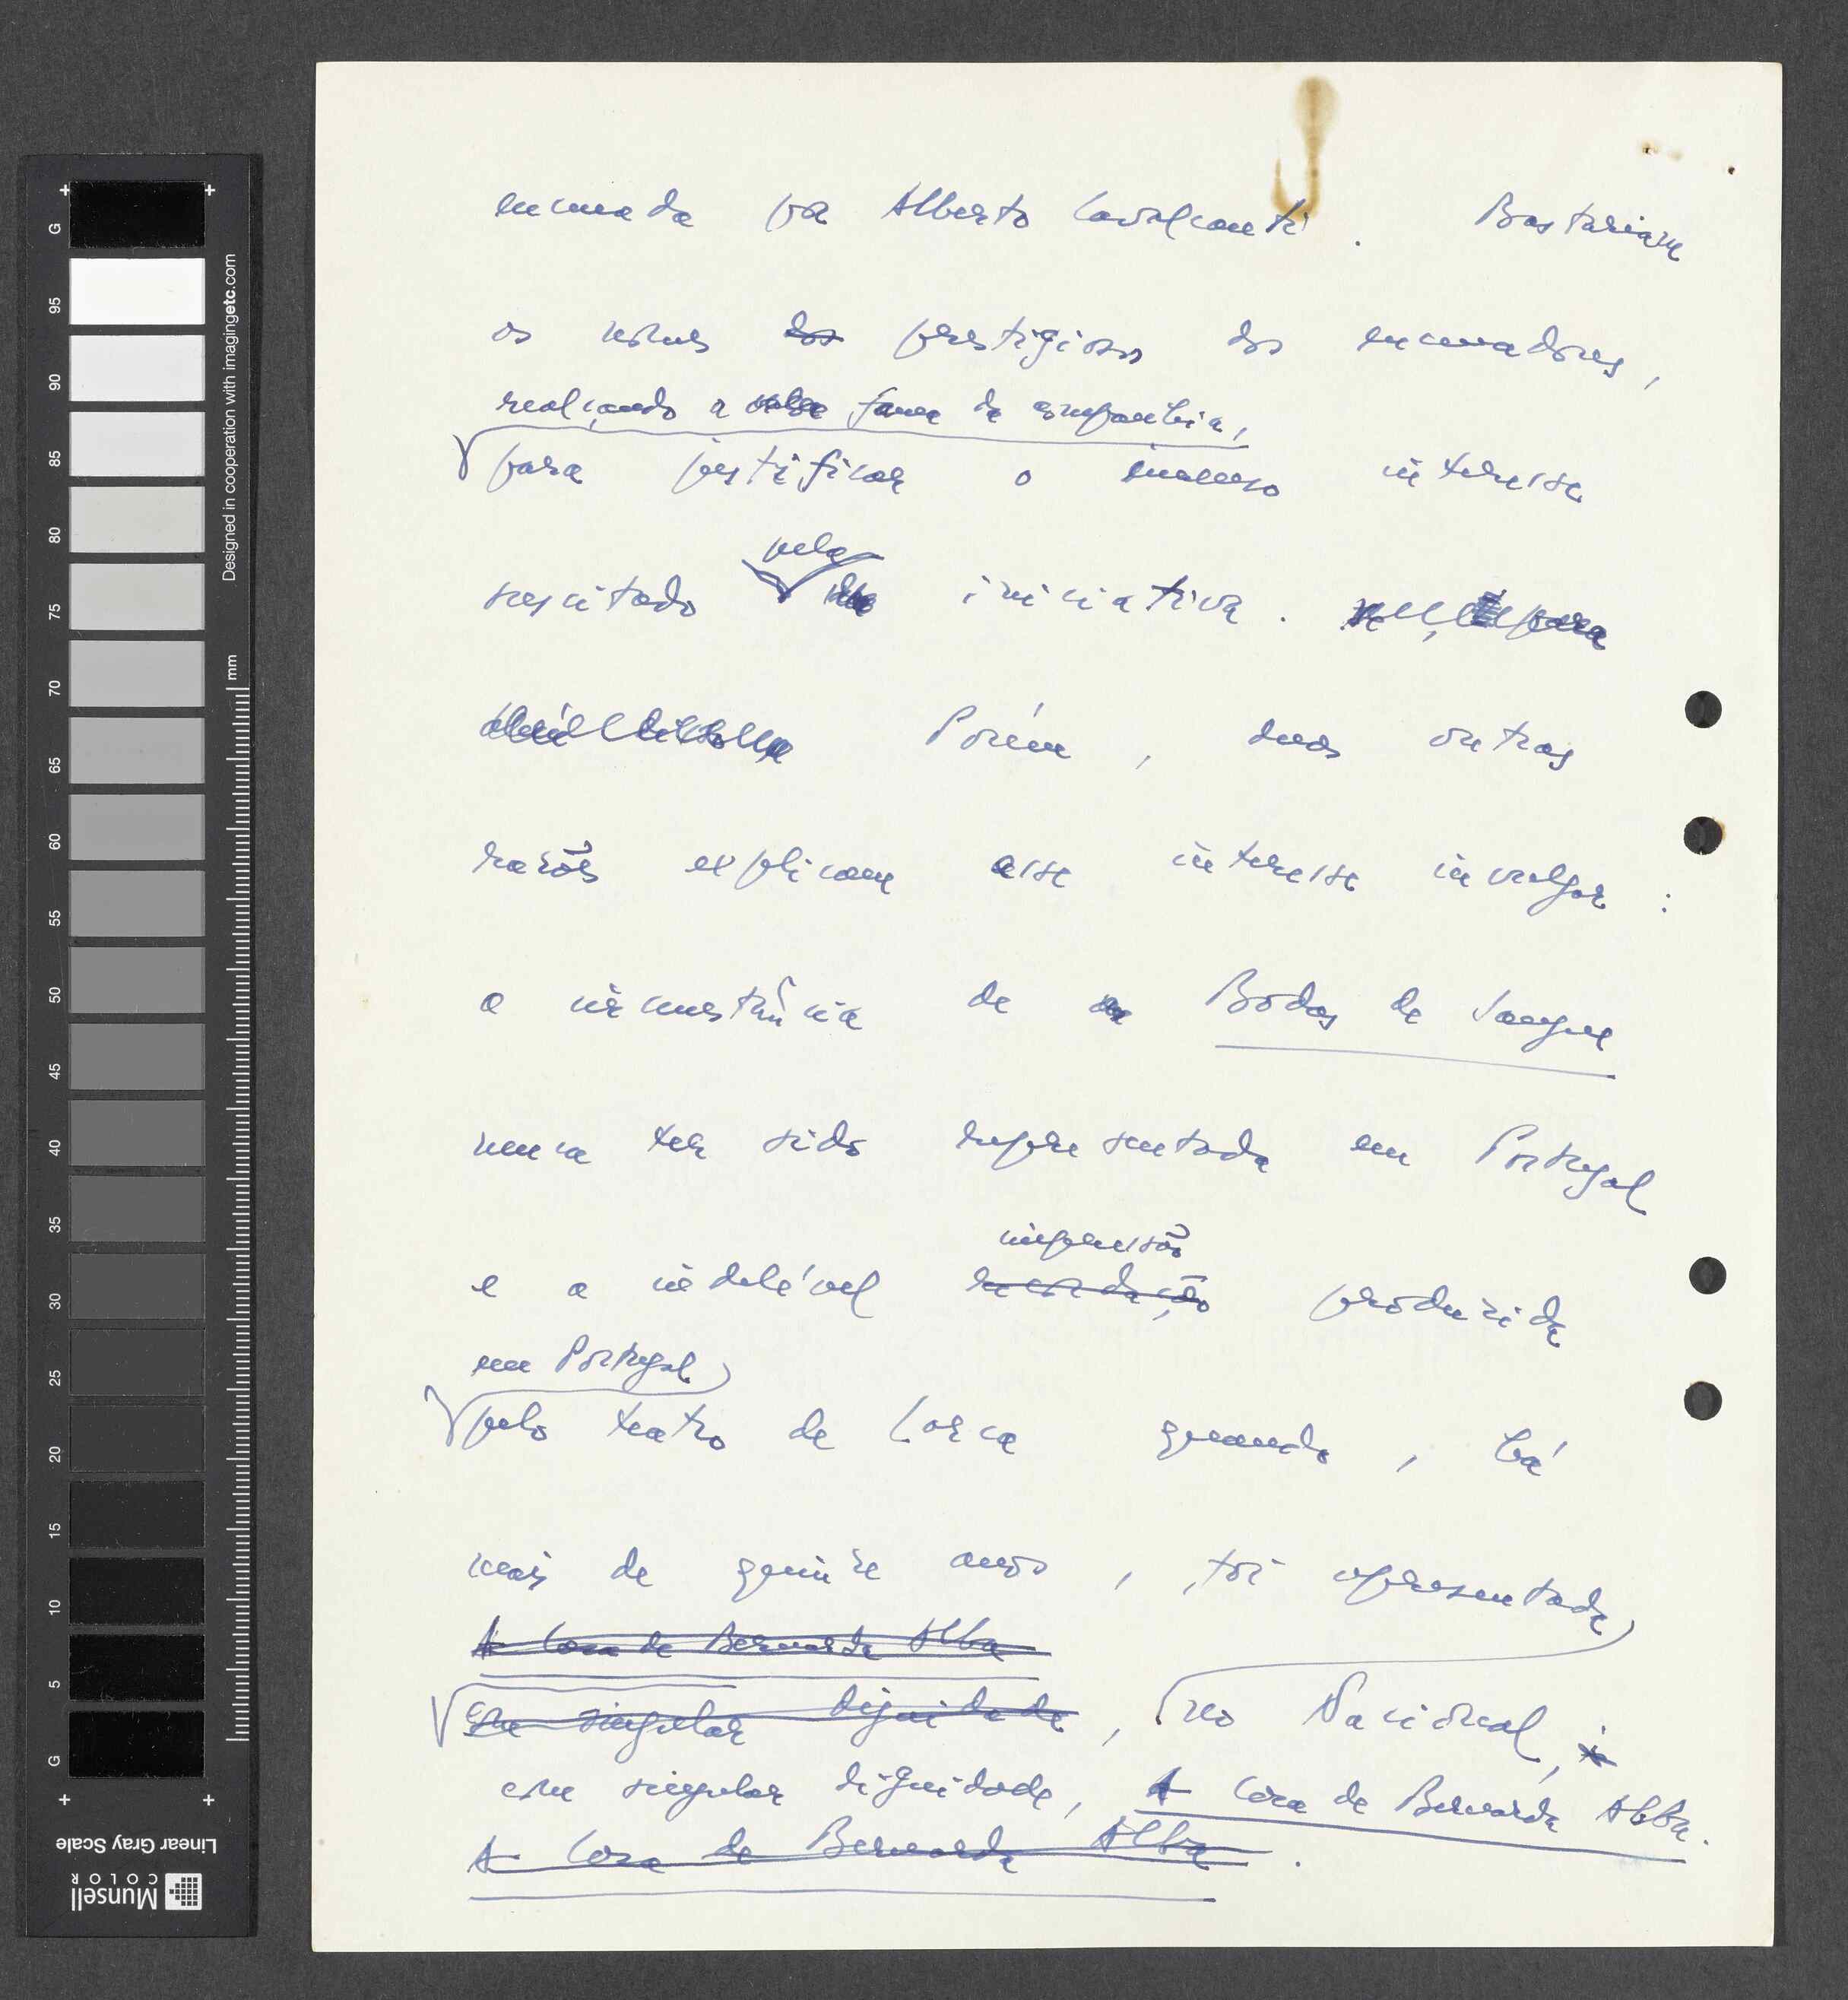 encenada por Alberto Cavalcanti. Bastariam
os nomes dos prestigiosos dos encenadores,
realçando a fama da companhia,
para justificar o imenso interesse
pela
suscitado da iniciativa. para
Porém, duas outras
razões explicam esse interesse invulgar:
a circunstância de Bodas de Sangue
nunca ter sido representada em Portugal
impressão
e a indelével recordação produzida
em Portugal
pelo teatro de Lorca quando, há
mais de quinze anos, foi apresentada
A Casa de Bernarda Alba
com singular dignidade, no Nacional,
com singular dignidade, A Casa de Bernarda Alba.
A Casa de Bernarda Alba.
G
95
90
85
80
75
70
65
60
55
50
45
40
35
30
25
20
15
10
5
G
Designed in cooperation with imagingetc.com
mm
Linear Gray Scale
Munsell
COLOR